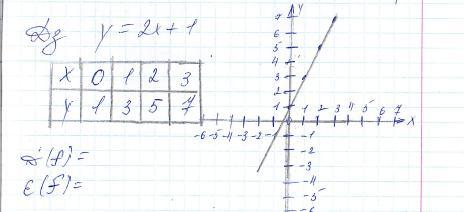 Дз y = 2x+1
X 0 1 2 3
Y 1 3 5 7
D(f) =
E(f) =
Y
7
6
5
4
3
2
1
-6 -5 -4 -3 -2 -1 0 1 2 3 4 5 6 7 X
-1
-2
-3
-4
-5
-6